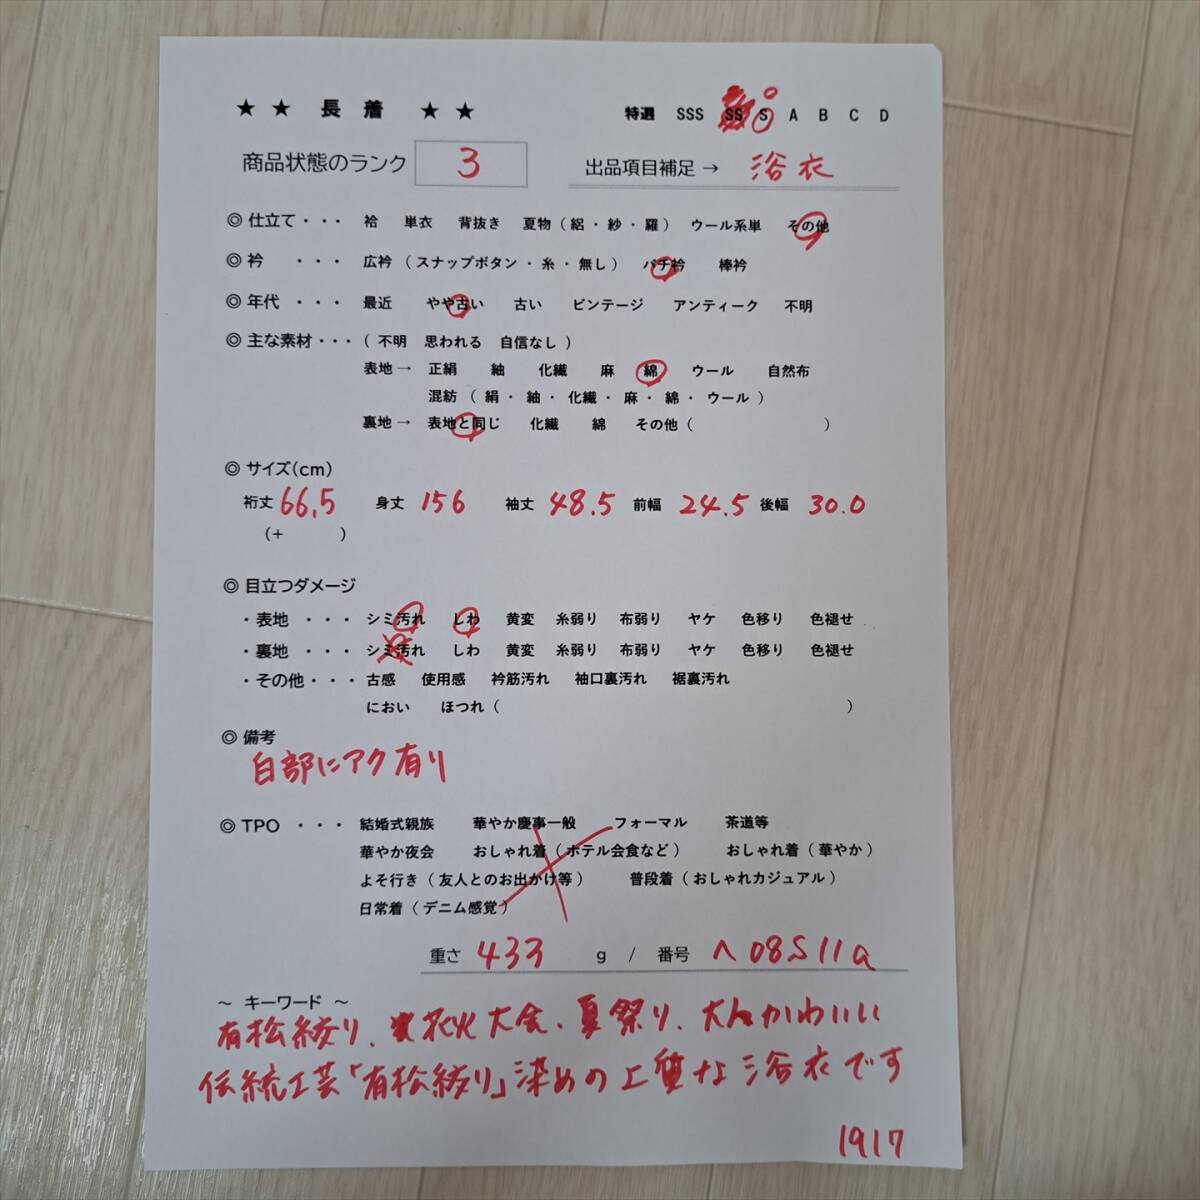 ★ ★ 長 着 ★ ★
特選 SSS SS S A B C D
商品状態のランク 3
出品項目補足 → 浴衣
◎ 仕立て・・・ 袷 単衣 背抜き 夏物(絽・紗・羅) ウール系単 その他
◎ 衿 ・・・ 広衿(スナップボタン・糸・無し) バチ衿 棒衿
◎ 年代 ・・・ 最近 やや古い 古い ビンテージ アンティーク 不明
◎ 主な素材・・・(不明 思われる 自信なし)
表地→ 正絹 紬 化繊 麻 綿 ウール 自然布
混紡(絹・紬・化繊・麻・綿・ウール)
裏地→ 表地と同じ 化繊 綿 その他( )
◎ サイズ(cm)
裄丈 66.5 身丈 156 袖丈 48.5 前幅 24.5 後幅 30.0
(+ )
◎ 目立つダメージ
・表地 ・・・ シミ汚れ しわ 黄変 糸弱り 布弱り ヤケ 色移り 色褪せ
・裏地 ・・・ シミ汚れ しわ 黄変 糸弱り 布弱り ヤケ 色移り 色褪せ
・その他・・・ 古感 使用感 衿筋汚れ 袖口裏汚れ 裾裏汚れ
におい ほつれ( )
◎ 備考
白部にアク有り
◎ TPO ・・・ 結婚式親族 華やか慶事一般 フォーマル 茶道等
華やか夜会 おしゃれ着(ホテル会食など) おしゃれ着(華やか)
よそ行き(友人とのお出かけ等) 普段着(おしゃれカジュアル)
日常着(デニム感覚)
重さ 433 g / 番号 へ08S11a
～ キーワード ～
有松絞り、花火大会、夏祭り、大人かわいい
伝統工芸「有松絞り」染めの上質な浴衣です
1917